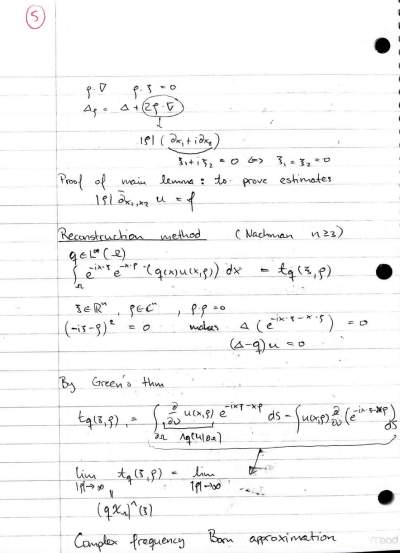 5
ρ·∇ ρ·ξ = 0
Δρ = Δ + 2ρ·∇
|ρ| (∂x₁ + i∂x₂)
ξ₁ + iξ₂ = 0 ⇔ ξ₁ = ξ₂ = 0
Proof of main lemma: to prove estimates
|ρ| ∂̄x₁,x₂ u = f
Reconstruction method (Nachman n≥3)
q ∈ L^∞(Ω)
∫_Ω e^{-ix·ξ} e^{-x·ρ} (q(x)u(x,ρ)) dx = tq(ξ,ρ)
ξ∈ℝⁿ, ρ∈ℂⁿ, ρ·ρ = 0
(-iξ-ρ)² = 0 makes Δ(e^{-ix·ξ-x·ρ}) = 0
(Δ-q)u = 0
By Green's thm
tq(ξ,ρ) = ∫_∂Ω ∂/∂ν u(x,ρ) e^{-ixξ-xρ} dS - ∫u(x,ρ) ∂/∂ν (e^{-ix·ξ-xρ}) dS
Λq(u|∂Ω)
lim |ρ|→∞ tq(ξ,ρ) = lim |ρ|→∞
(qχ_Ω)^(ξ)
Complex frequency Born approximation